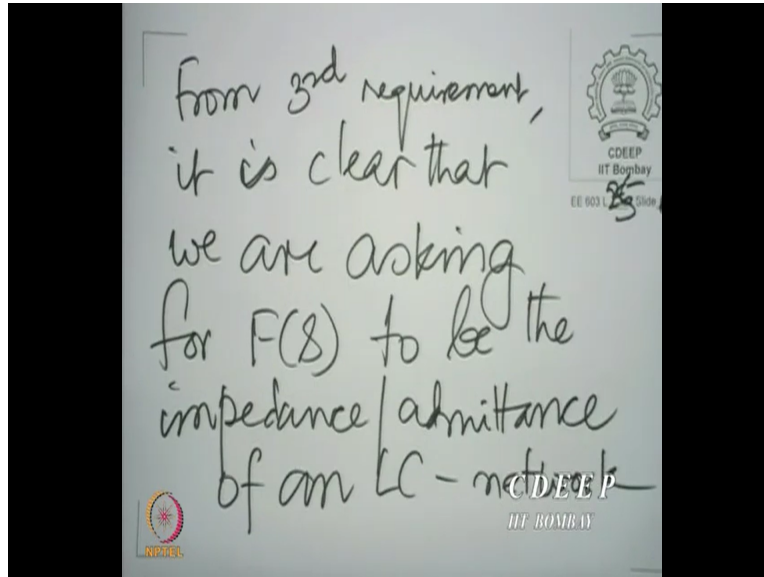 From 3rd requirement,
it is clear that
we are asking
for F(s) to be the
impedance/admittance
of an LC-network
CDEEP
IIT Bombay
EE 603 L Slide
CDEEP
IIT BOMBAY
NPTEL